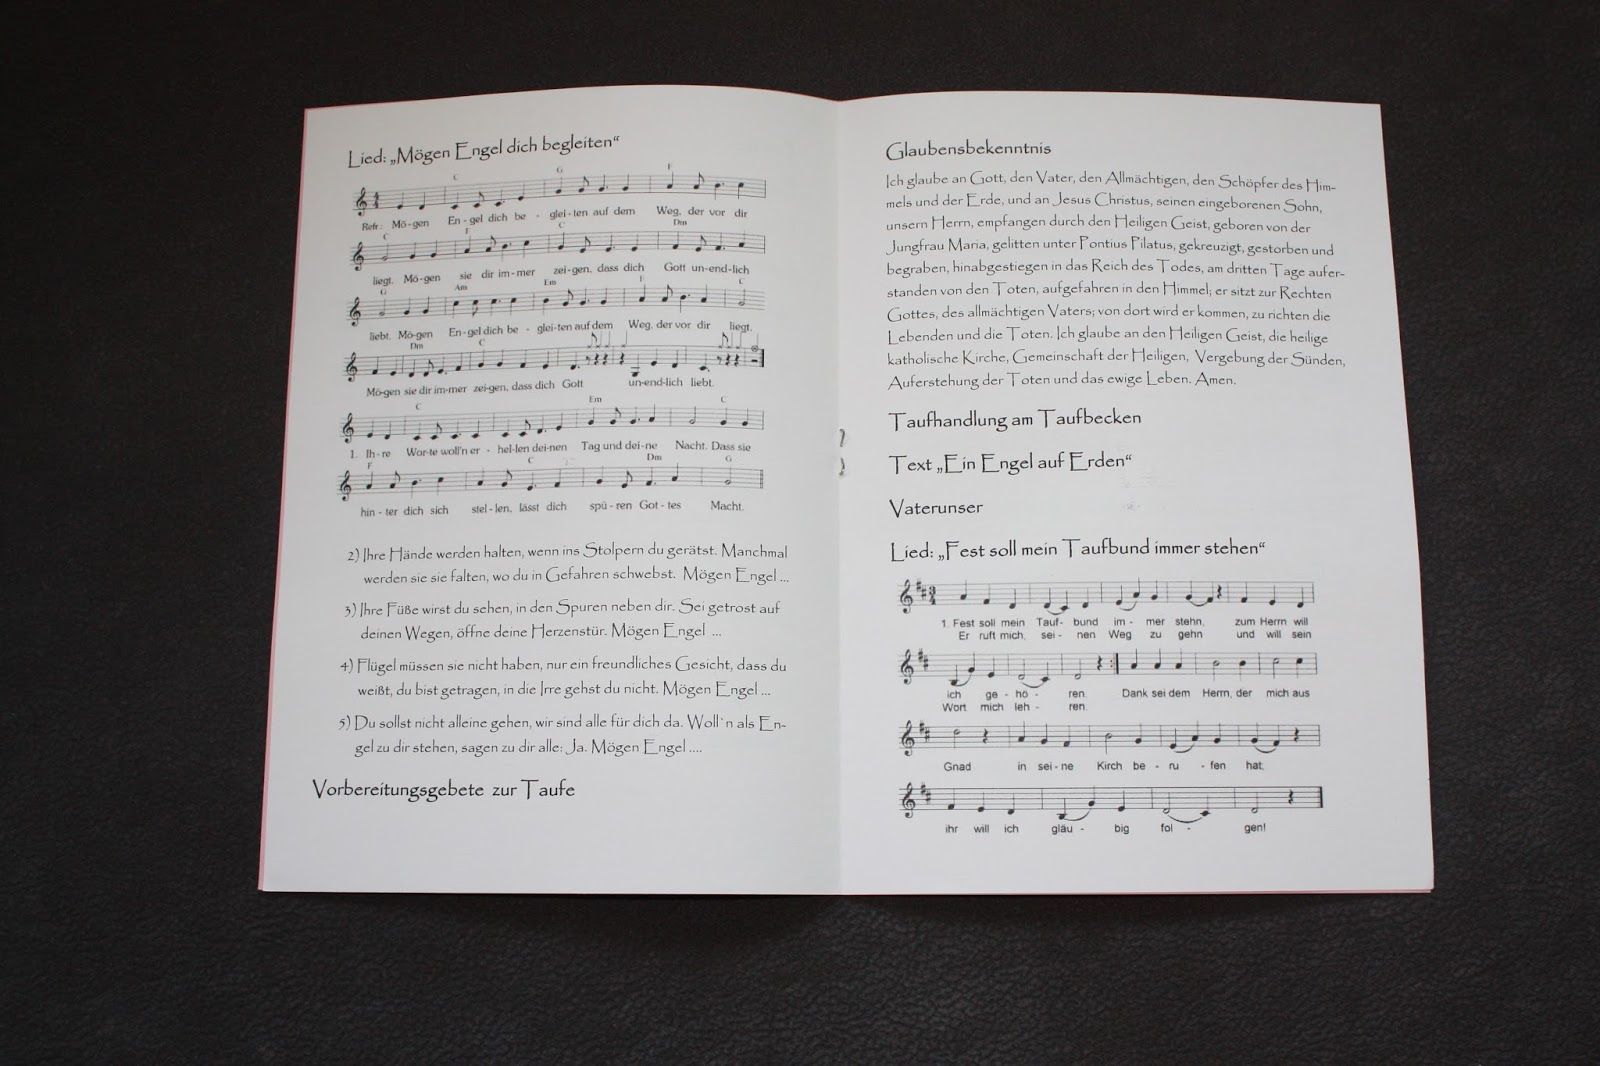 Lied: „Mögen Engel dich begleiten“
C G F
Refr.: Mö-gen En-gel dich be-glei-ten auf dem Weg, der vor dir
C F C Dm
liegt. Mö-gen sie dir im-mer zei-gen, dass dich Gott un-end-lich
G Am Em F C
liebt. Mö-gen En-gel dich be-glei-ten auf dem Weg, der vor dir liegt.
Dm C
Mö-gen sie dir im-mer zei-gen, dass dich Gott un-end-lich liebt.
C Em C
1. Ih-re Wor-te woll'n er-hel-len dei-nen Tag und dei-ne Nacht. Dass sie
F C Dm G
hin-ter dich sich stel-len, lässt dich spü-ren Got-tes Macht.
2) Ihre Hände werden halten, wenn ins Stolpern du gerätst. Manchmal
werden sie sie falten, wo du in Gefahren schwebst. Mögen Engel ...
3) Ihre Füße wirst du sehen, in den Spuren neben dir. Sei getrost auf
deinen Wegen, öffne deine Herzenstür. Mögen Engel ...
4) Flügel müssen sie nicht haben, nur ein freundliches Gesicht, dass du
weißt, du bist getragen, in die Irre gehst du nicht. Mögen Engel ...
5) Du sollst nicht alleine gehen, wir sind alle für dich da. Woll`n als En-
gel zu dir stehen, sagen zu dir alle: Ja. Mögen Engel ....
Vorbereitungsgebete zur Taufe
Glaubensbekenntnis
Ich glaube an Gott, den Vater, den Allmächtigen, den Schöpfer des Him-
mels und der Erde, und an Jesus Christus, seinen eingeborenen Sohn,
unsern Herrn, empfangen durch den Heiligen Geist, geboren von der
Jungfrau Maria, gelitten unter Pontius Pilatus, gekreuzigt, gestorben und
begraben, hinabgestiegen in das Reich des Todes, am dritten Tage aufer-
standen von den Toten, aufgefahren in den Himmel; er sitzt zur Rechten
Gottes, des allmächtigen Vaters; von dort wird er kommen, zu richten die
Lebenden und die Toten. Ich glaube an den Heiligen Geist, die heilige
katholische Kirche, Gemeinschaft der Heiligen, Vergebung der Sünden,
Auferstehung der Toten und das ewige Leben. Amen.
Taufhandlung am Taufbecken
Text „Ein Engel auf Erden“
Vaterunser
Lied: „Fest soll mein Taufbund immer stehen“
3 4
1. Fest soll mein Tauf-bund im-mer stehn, zum Herrn will
Er ruft mich, sei-nen Weg zu gehn und will sein
ich ge-hö-ren. Dank sei dem Herrn, der mich aus
Wort mich leh-ren.
Gnad in sei-ne Kirch be-ru-fen hat,
ihr will ich gläu-big fol-gen!